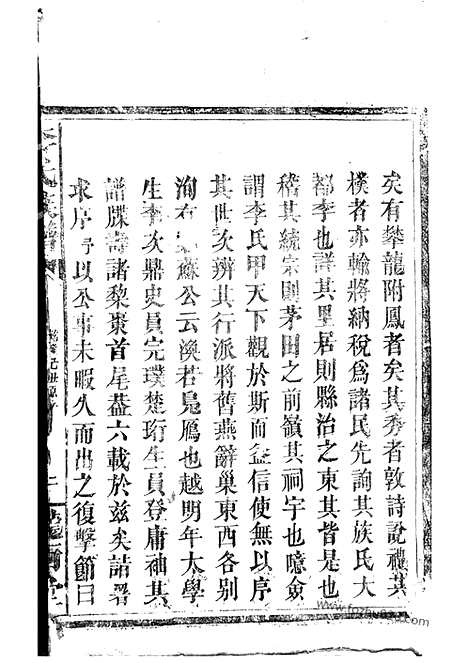 矣有攀龍附鳳者矣其秀者敦詩說禮其
樸者亦輸將納稅爲諸民先詢其族氏大
都李也譜其里居則縣治之東其皆是也
稽其統宗則茅田之前嶺其祠宇也噫僉
謂李氏甲天下觀於斯而益信使無以序
其世次辨其行派將舊燕辭巢東西各別
洵有蘇公云渙若鳧鴈也越明年太學
生李次鼎史員完璞楚珩生員登庸袖其
譜牒壽諸黎棗首尾葢六載於兹矣詰署
求序以公事未暇久而出之復擊節曰
氏族譜